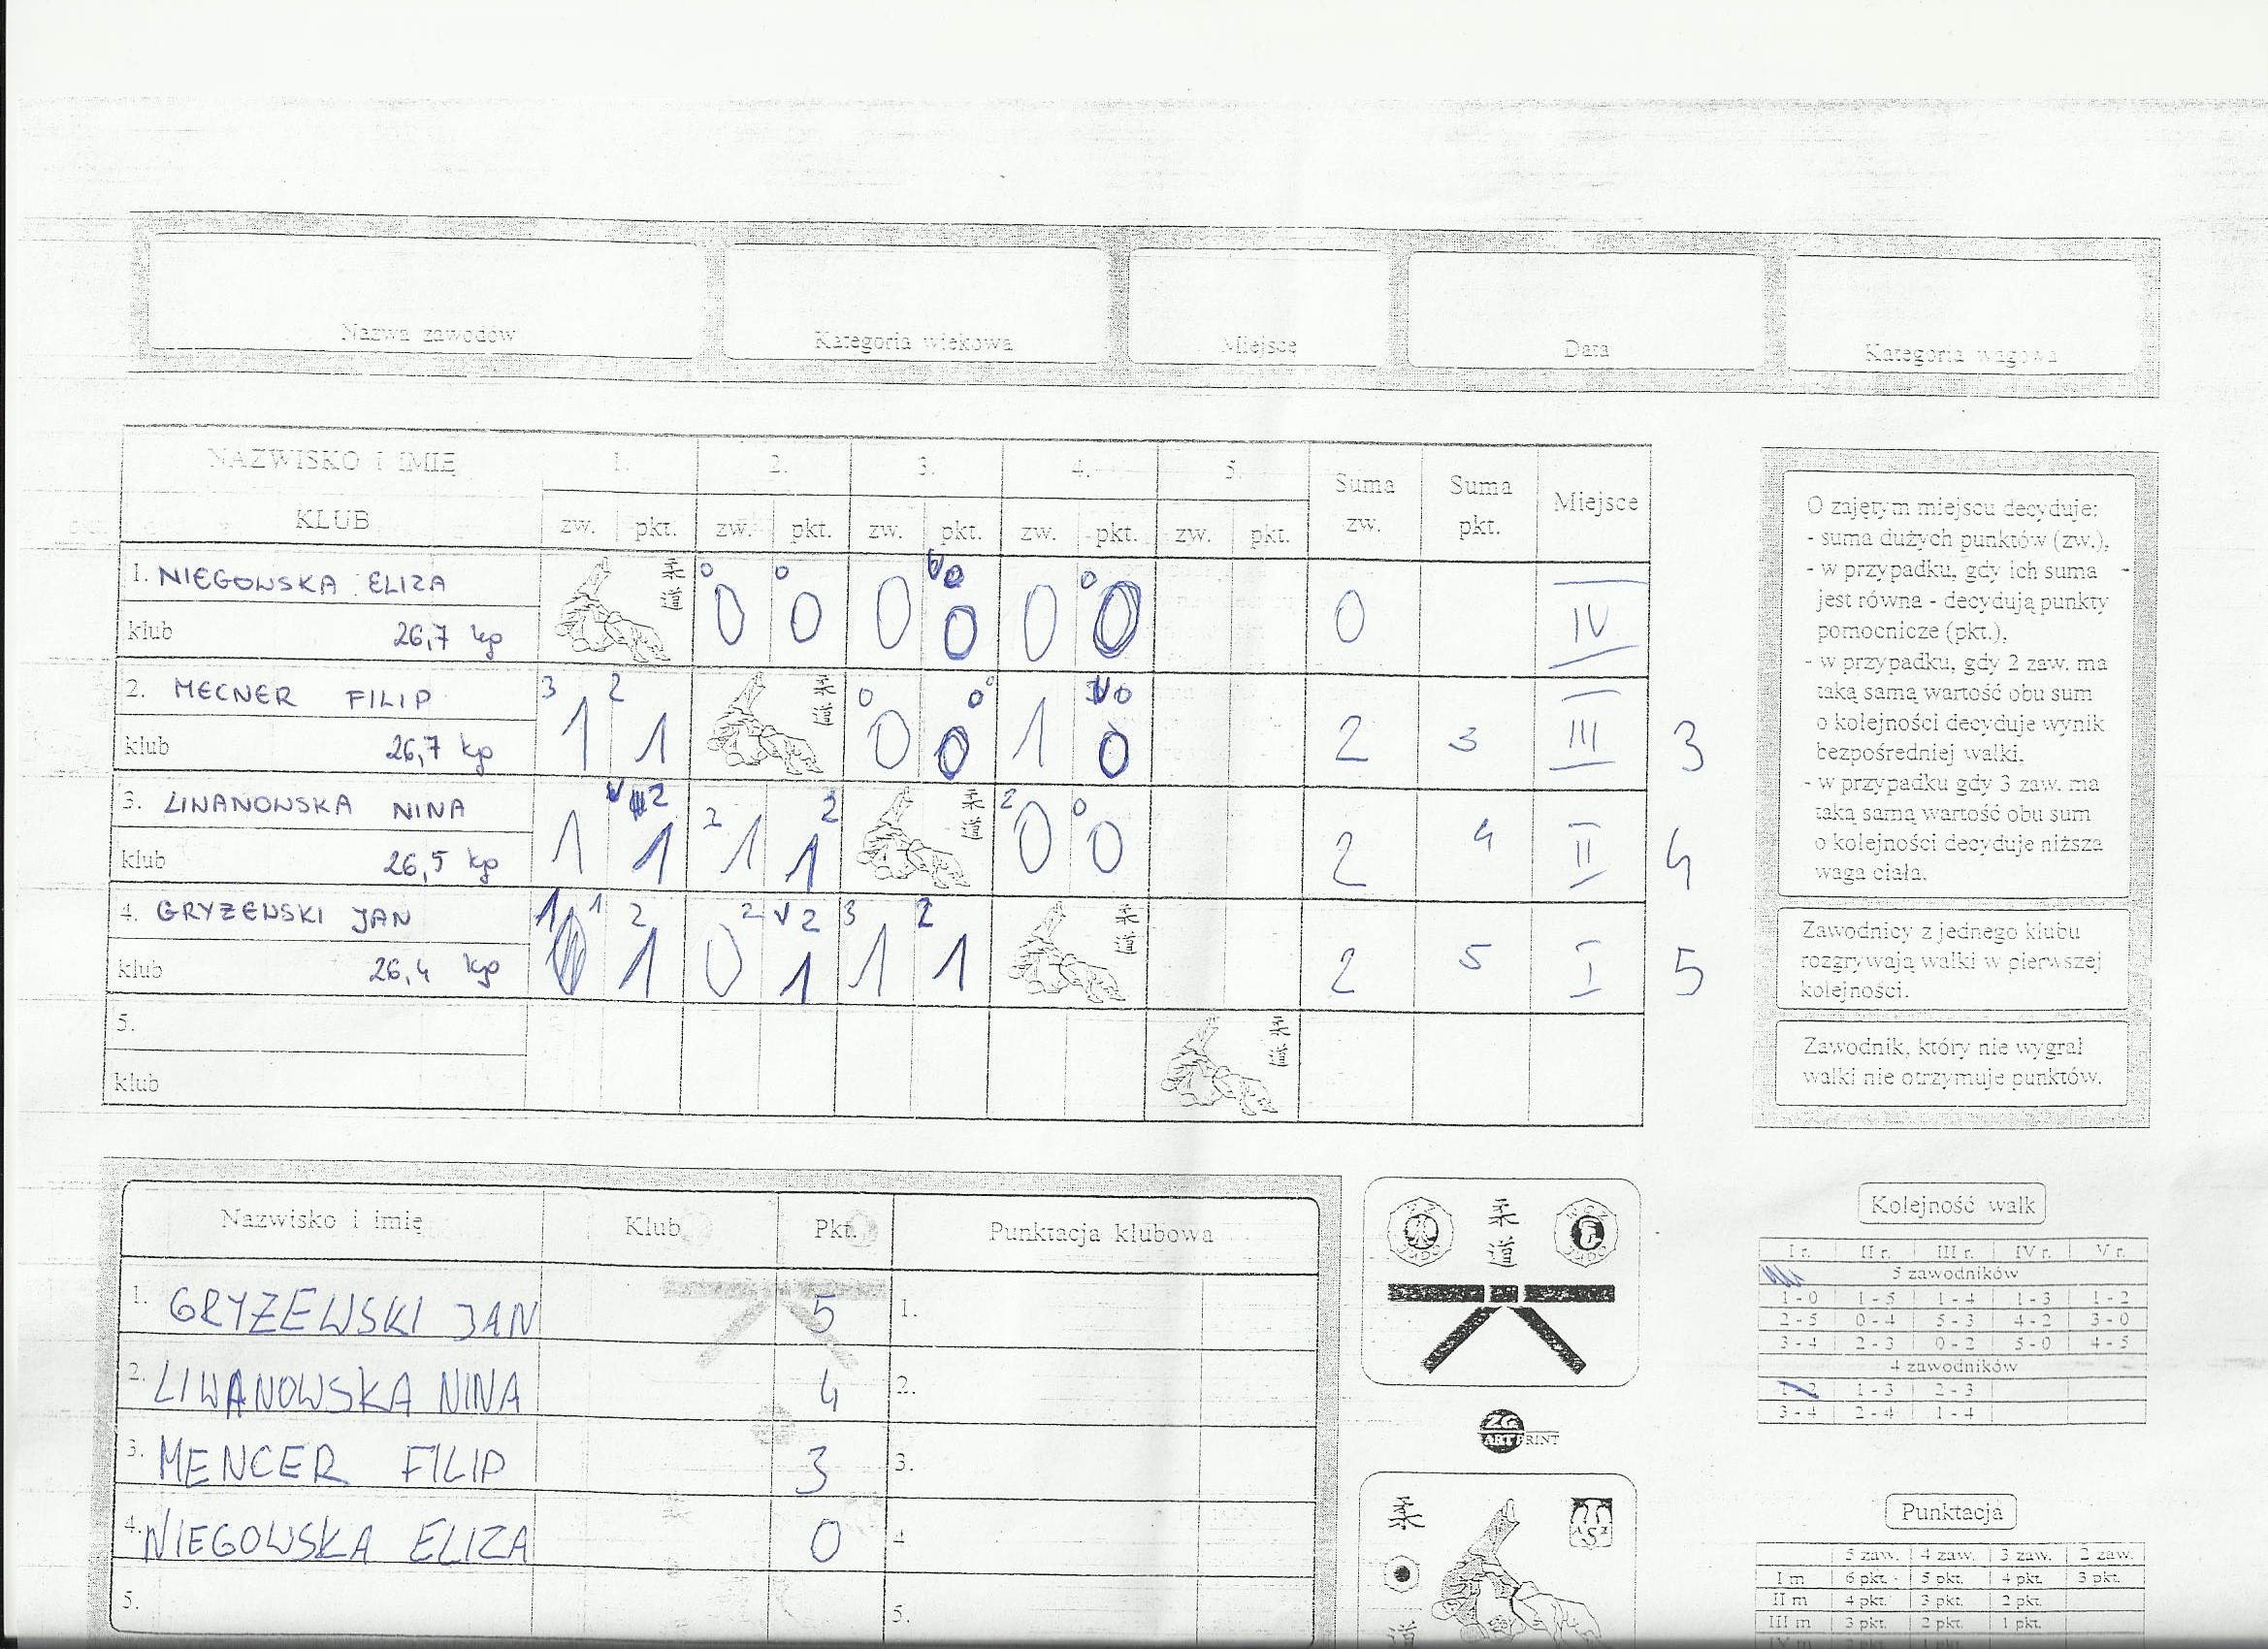 Nazwa zawodów
Kategoria wiekowa
Miejsce
Data
Kategoria wagowa
NAZWISKO I IMIĘ 1. 2. 3. 4. 5. Suma zw. Suma pkt. Miejsce
KLUB zw. pkt. zw. pkt. zw. pkt. zw. pkt. zw. pkt.
1. NIEGOWSKA ELIZA 柔道 0 0 0 0 0 0 0 0 0 0 IV
klub 26,7 kg
2. MECNER FILIP 3 1 2 1 柔道 0 0 0 0 1 0 0 2 3 III 3
klub 26,7 kg
3. LIWANOWSKA NINA 1 2 1 2 1 2 1 柔道 2 0 0 0 2 4 II 4
klub 26,5 kg
4. GRYZEWSKI JAN 1 1 2 1 2 0 2 1 3 1 2 1 柔道 2 5 I 5
klub 26,4 kg
5. 柔道
klub
O zajętym miejscu decyduje:
- suma dużych punktów (zw.),
- w przypadku, gdy ich suma
jest równa - decydują punkty
pomocnicze (pkt.),
- w przypadku, gdy 2 zaw. ma
taką samą wartość obu sum
o kolejności decyduje wynik
bezpośredniej walki,
- w przypadku gdy 3 zaw. ma
taką samą wartość obu sum
o kolejności decyduje niższa
waga ciała.
Zawodnicy z jednego klubu
rozgrywają walki w pierwszej
kolejności.
Zawodnik, który nie wygrał
walki nie otrzymuje punktów.
Nazwisko i imię Klub Pkt. Punktacja klubowa
1. GRYZEWSKI JAN 5 1.
2. LIWANOWSKA NINA 4 2.
3. MENCER FILIP 3 3.
4. NIEGOWSKA ELIZA 0 4
5. 5.
柔道
ZG
ART PRINT
柔
道
Kolejność walk
I r. II r. III r. IV r. V r.
5 zawodników
1 - 0 1 - 5 1 - 4 1 - 3 1 - 2
2 - 5 0 - 4 5 - 3 4 - 2 3 - 0
3 - 4 2 - 3 0 - 2 5 - 0 4 - 5
4 zawodników
1 - 2 1 - 3 2 - 3
3 - 4 2 - 4 1 - 4
Punktacja
5 zaw. 4 zaw. 3 zaw. 2 zaw.
I m 6 pkt. 5 pkt. 4 pkt. 3 pkt.
II m 4 pkt. 3 pkt. 2 pkt.
III m 3 pkt. 2 pkt. 1 pkt.